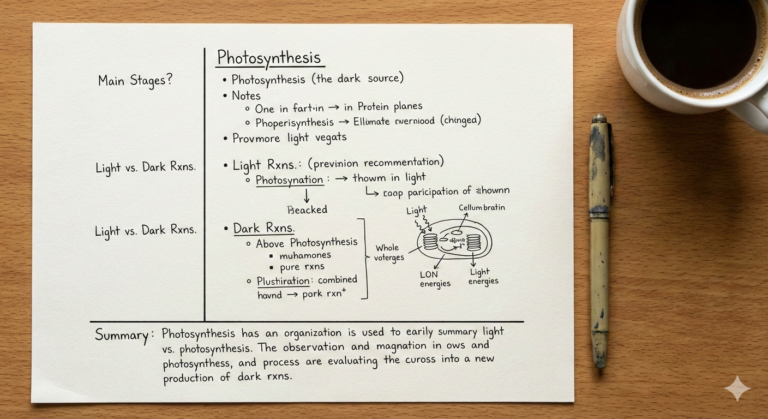 Photosynthesis
Main Stages?
• Photosynthesis (the dark source)
• Notes
One in fart-in → in Protein planes
Phoperisynthesis → Ellimate (changed)
• Provmore light vegats
Light vs. Dark Rxns.
• Light Rxns.: (previnion recommentation)
Photosynation : → thowm in light
↳ coop paricipation of
↓
Beacked
Light vs. Dark Rxns.
• Dark Rxns.
Above Photosynthesis
▪ muhamones
▪ pure rxns
Plustiration: combined
hovnd → pork rxn⁺
Whole
voterges
Light
Cellumbratin
LON
energies
Light
energies
Summary: Photosynthesis has an organization is used to earily summary light
vs. photosynthesis. The observation and magnation in ows and
photosynthess, and process are evaluating the cuross into a new
production of dark rxns.